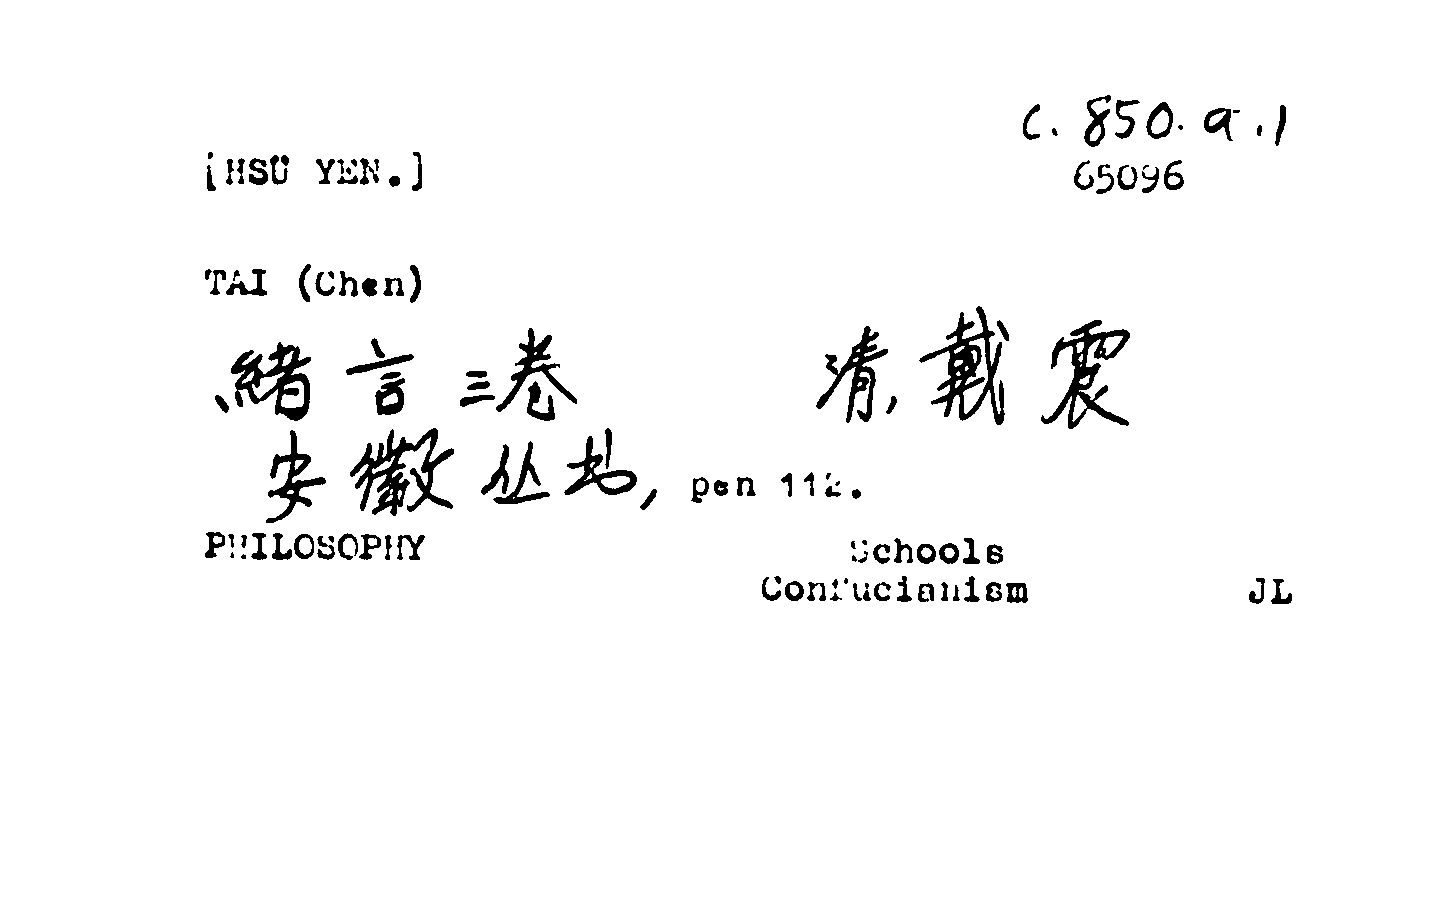 C. 850. a. 1
[HSÜ YEN.]
65096
TAI (Chen)
緒言三卷 清, 戴震
安徽丛书, pen 112.
PHILOSOPHY Schools
Confucianism JL